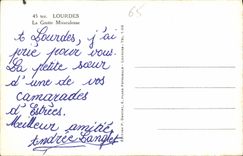 45 bis. LOURDES
La Grotte Miraculeuse
65
à Lourdes, j'ai
prié pour vous.
La petite sœur
d'une de vos
camarades
d'Estrées.
Meilleur amitié
Andrée